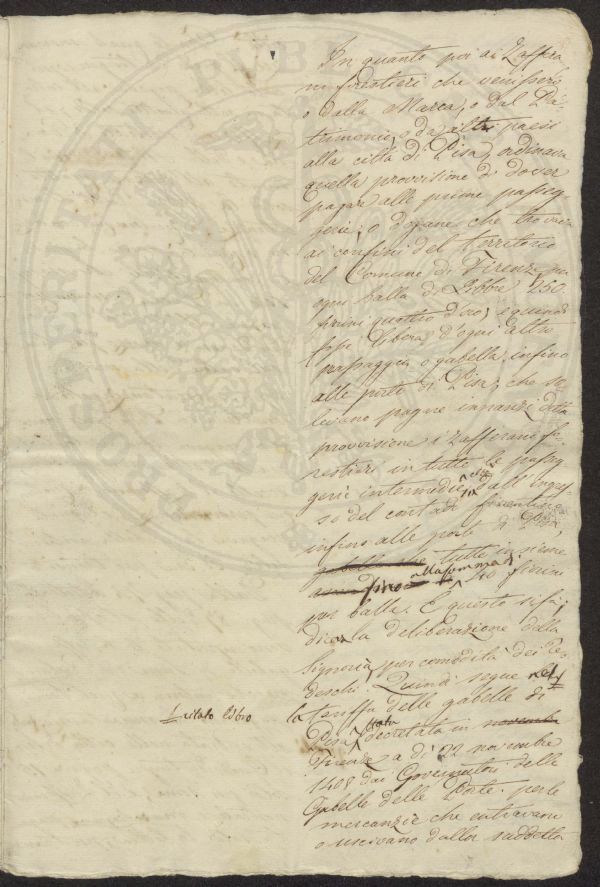 In quanto poi ai Zaffera
ni forestieri che venissero
o dalla Marca, o dal Pa-
trimonio, o da altri paesi
alla città di Pisa, ordinava
quella provvisione di dover
pagare alle prime passeg
gerie, o dogane che trovava
ai confini del territorio
del Comune di Firenze per
ogni balla di Libbre 250
fiorini quattro d'oro, e quindi
fosse libera d'ogni altro
passaggio o gabella infino
alle porte di Pisa; che so
levano pagare innanzi detta
provvisione i zafferani fo-
restieri in tutte le passeg
gerie intermedie, dall'ingres-
so del contado fiorentino
infino alle porte di Pisa,
tutte insieme
fino alla somma di 10 fiorini
per balla. E questo si fa,
dice la deliberazione della
Signoria, per comodità dei Te-
deschi. Quindi segue nel
citato libro la tariffa delle gabelle di
Pisa, stata decretata in novembre
Firenze a dì 22 novembre
1408 dai Governatori delle
Gabelle delle Porte per le
mercanzie che entravano
o uscivano dalla suddetta